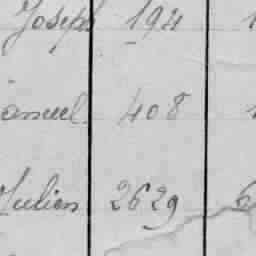 Joseph 194
amuel 408
Julien 2629